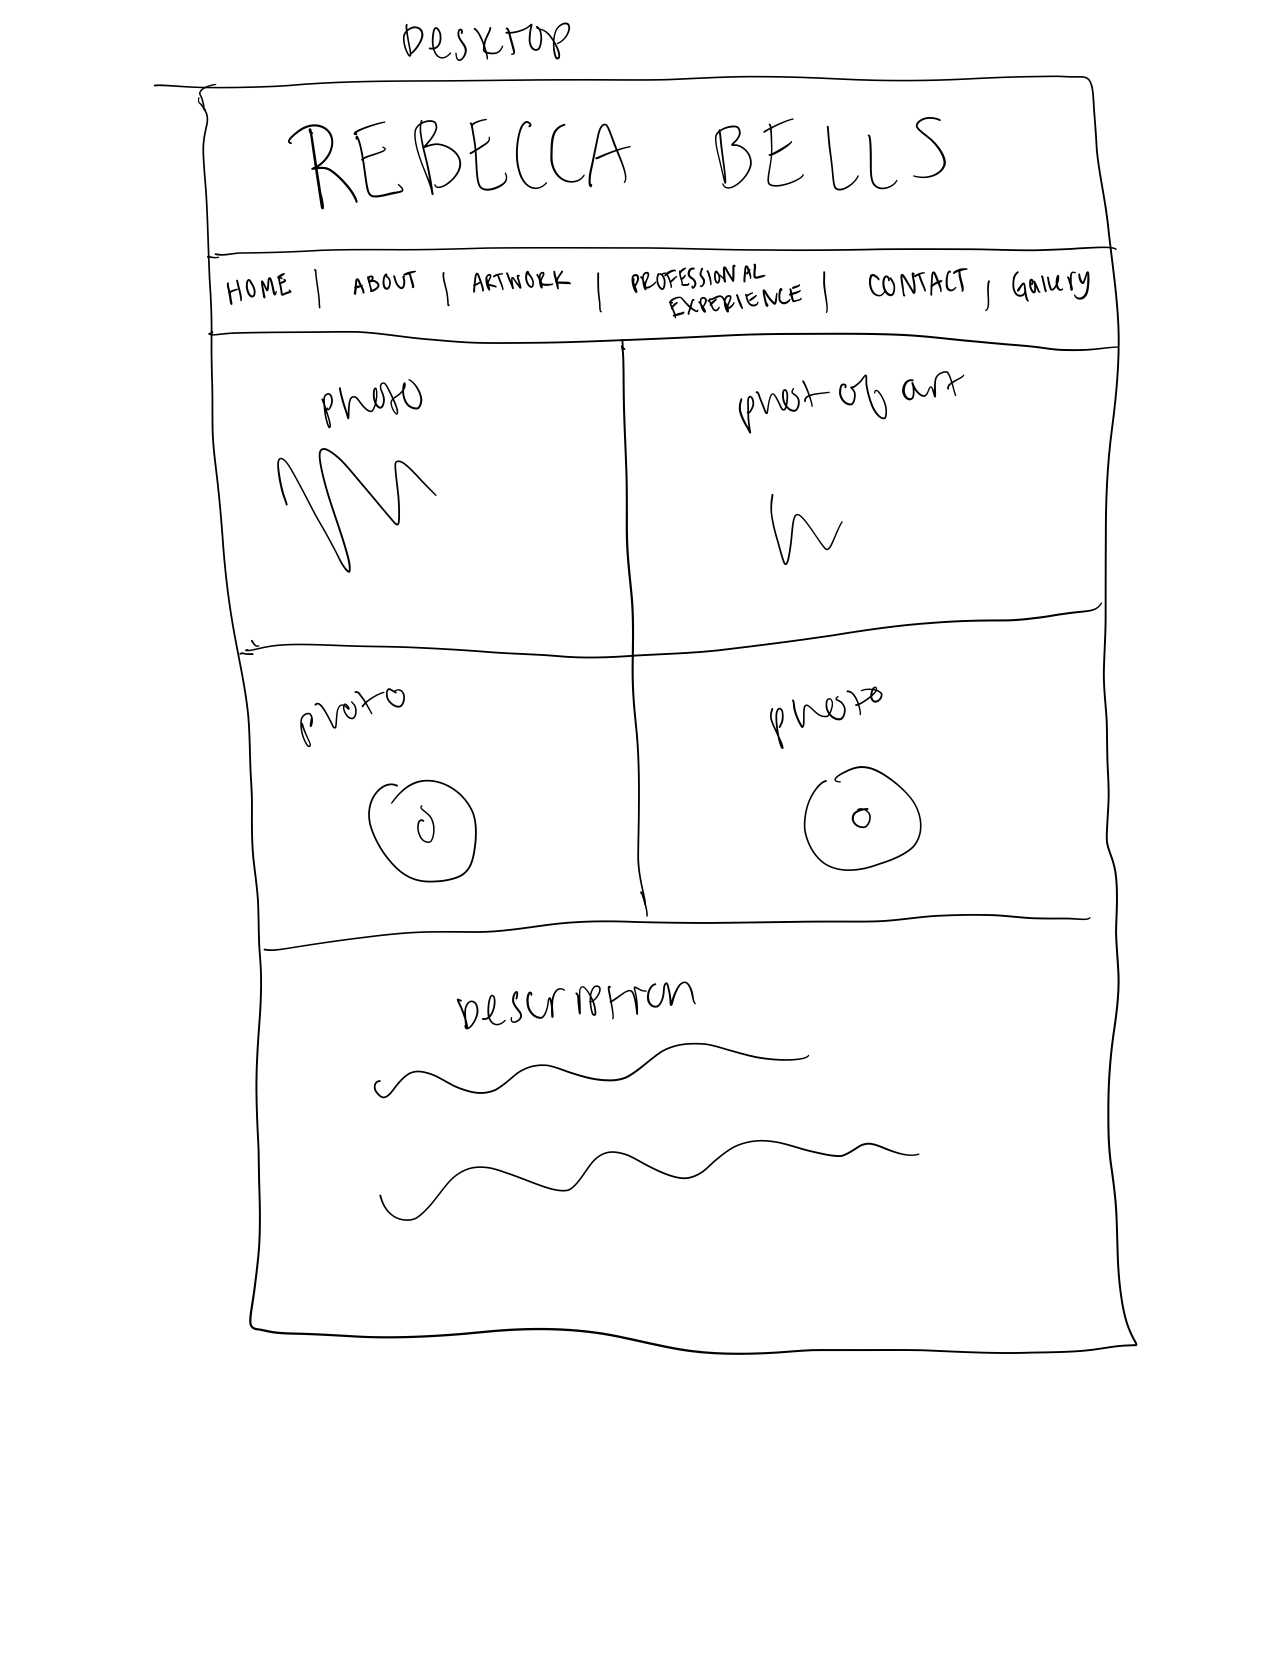 Desktop
REBECCA BELLS
HOME | ABOUT | ARTWORK | PROFESSIONAL EXPERIENCE | CONTACT | Gallery
photo
phot of art
photo
photo
Description